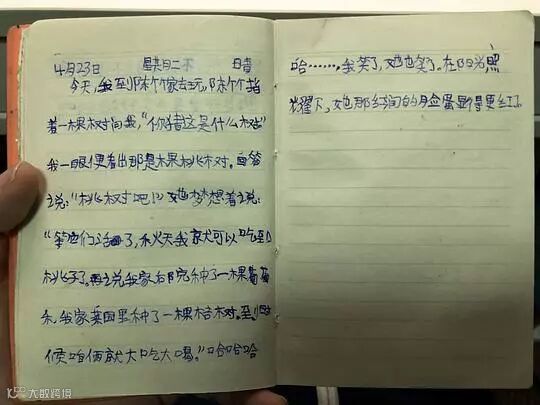 4月23日 星期二 晴
今天,我到陈个个家去玩,陈个个指
着一棵树问我,“你猜这是什么树?”
我一眼便看出那是棵桃树。回答
说:“桃树吧!”她梦想着说:
“等它们活了,秋天我就可以吃到
桃子了。再说我家后院种了一棵葡萄
树,我家菜园里种了一棵桔树。到时
候咱俩就大吃大喝。”哈哈哈
哈……,我笑了,她也笑了。在阳光照
耀下,她那红润的脸蛋显得更红了。
大数跨境